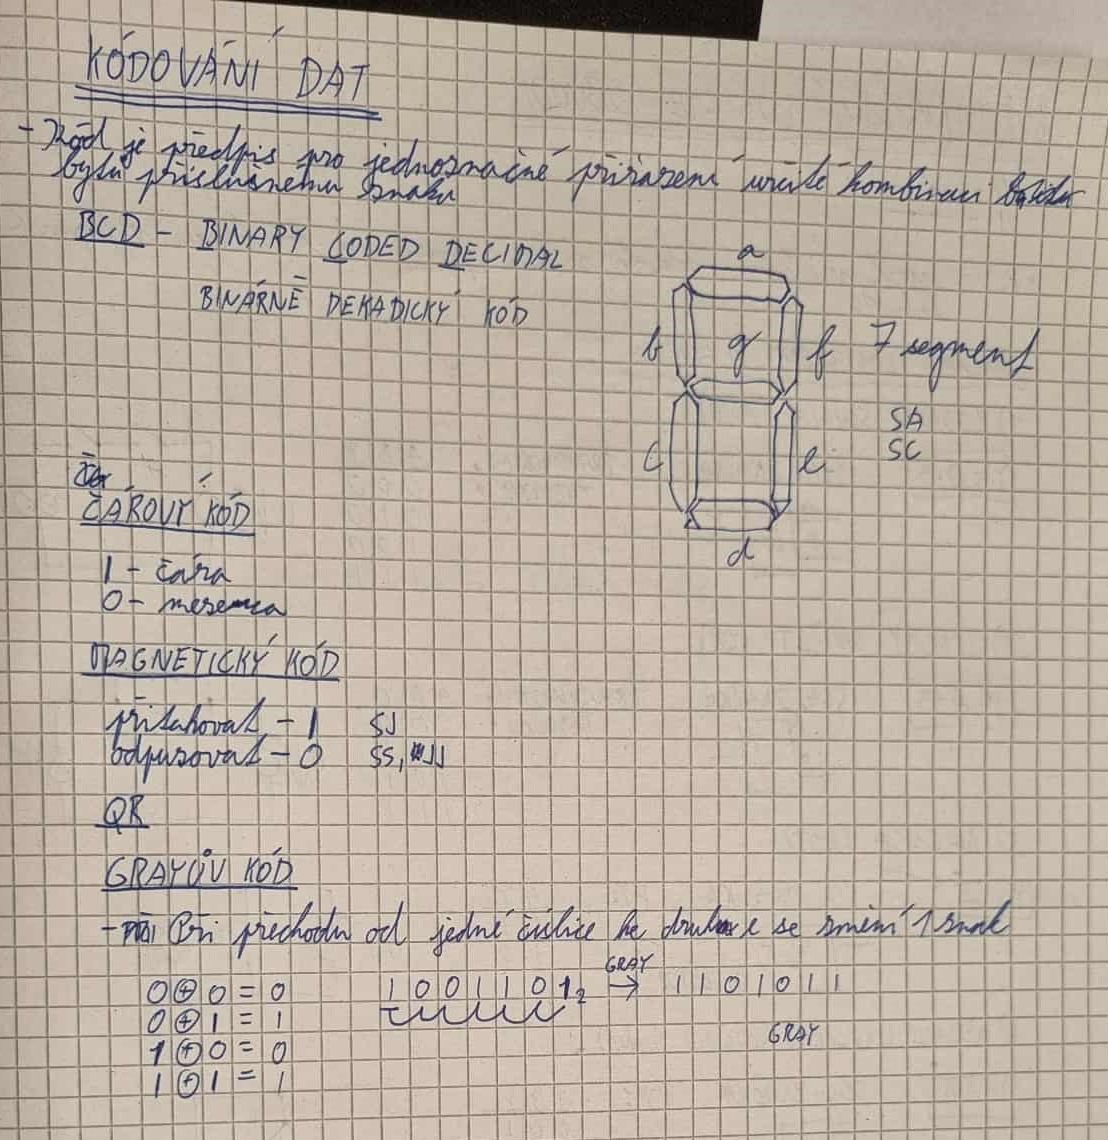 KÓDOVÁNÍ DAT
- Kód je předpis pro jednoznačné přiřazení určité kombinaci
bytů příslušnému znaku
BCD - BINARY CODED DECIMAL
BINÁRNĚ DEKADICKÝ KÓD
a
b g f 7 segment
SA
c e SC
d
ČÁROVÝ KÓD
1 - čára
0 - mezera
MAGNETICKÝ KÓD
přitahovat - 1 SJ
odpuzovat - 0 SS, JJ
QR
GRAYŮV KÓD
- Při přechodu od jedné číslice ke druhé se změní 1 znak
0 ⊕ 0 = 0 1 0 0 1 1 0 1₂ GRAY → 1 1 0 1 0 1 1
0 ⊕ 1 = 1
1 ⊕ 0 = 0 GRAY
1 ⊕ 1 = 1